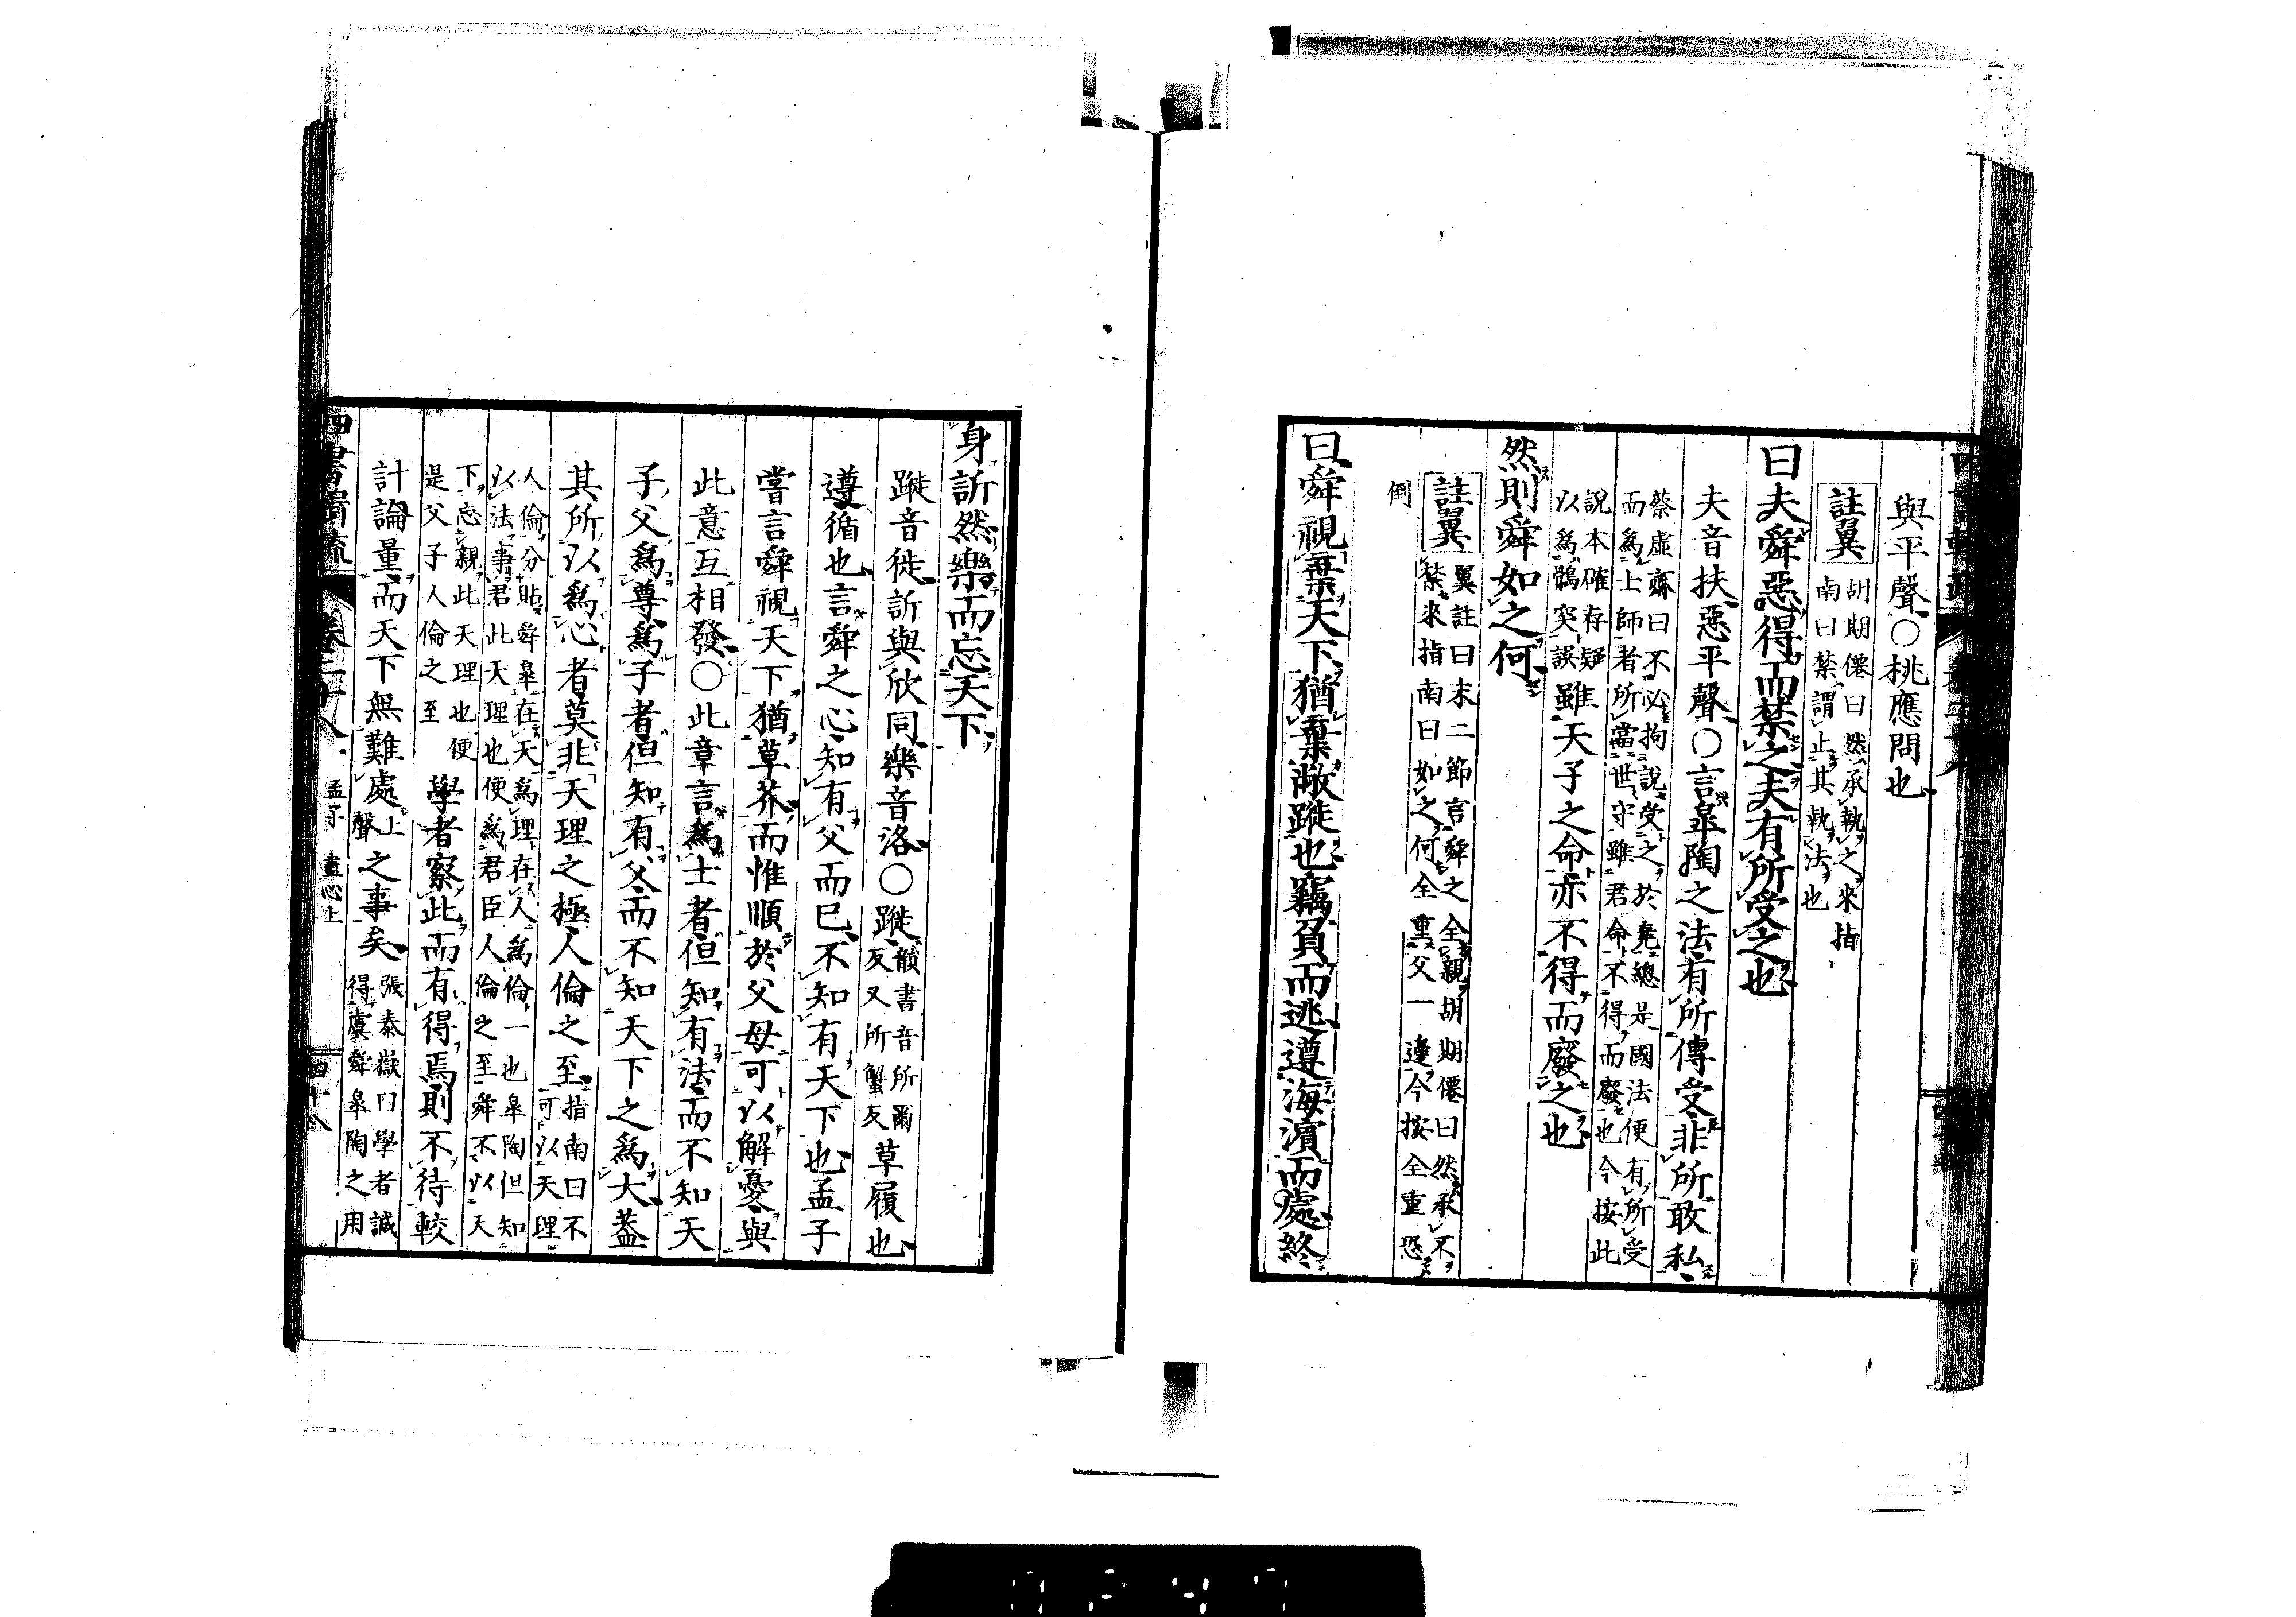 與平聲○桃應問也
註翼
胡期僊曰然承執之來指
南曰禁謂止其執法也
曰夫舜惡得而禁之夫有所受之也
夫音扶惡平聲○言皐陶之法有所傳受非所敢私
蔡虛齋曰不必拘說受之於堯總是國法便有所受
而爲士師者所當世守雖君命不得而廢也今按此
說本確存疑
以爲鶻突誤
雖天子之命亦不得而廢之也
然則舜如之何
註翼
翼註曰末二節言舜之全親胡期僊曰然承不
禁來指南曰如之何全重父一邊今按全重恐
倒
曰舜視棄天下猶棄敝蹝也竊負而逃遵海濱而處終
身訢然樂而忘天下
蹝音徙訢與欣同樂音洛○蹝
韻書音所爾
反又所蟹反
草履也
遵循也言舜之心知有父而已不知有天下也孟子
嘗言舜視天下猶草芥而惟順於父母可以解憂與
此意互相發○此章言爲士者但知有法而不知天
子父爲尊爲子者但知有父而不知天下之爲大蓋
其所以爲心者莫非天理之極人倫之至
指南曰不
可以天理
人倫分貼舜皐在天爲理在人爲倫一也皐陶但知
以法事君此天理也便爲君臣人倫之至舜不以天
下忘親此天理也便
是父子人倫之至
學者察此而有得焉則不待較
計論量而天下無難處
上
聲
之事矣
張泰嶽曰學者誠
得虞舜皐陶之用
卷二十八
孟子 盡心上
四十八